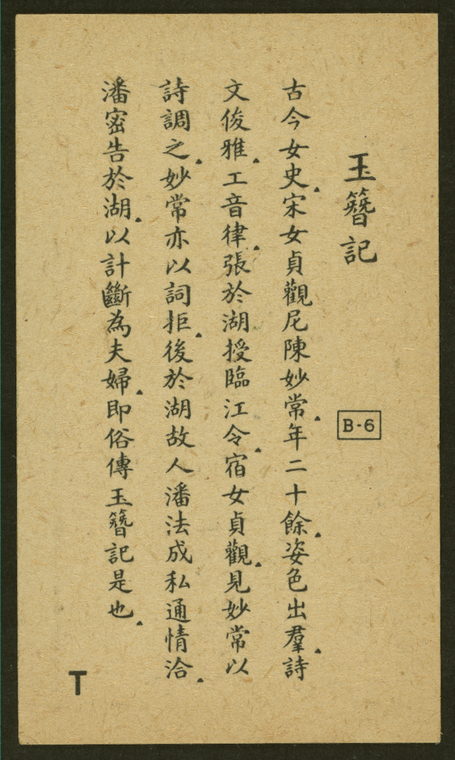 玉簪記
B-6
古今女史.宋女貞觀尼陳妙常.年二十餘.姿色出羣.詩
文俊雅.工音律.張於湖授臨江令.宿女貞觀.見妙常以
詩調之.妙常亦以詞拒.後於湖故人潘法成私通情洽.
潘密告於湖.以計斷為夫婦.即俗傳玉簪記是也.
T